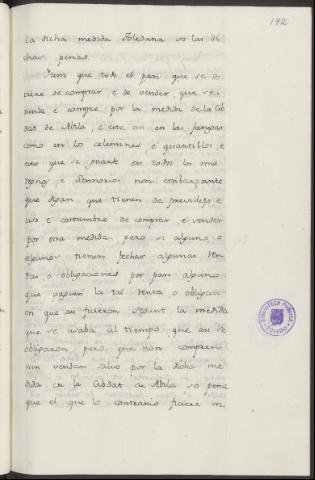 192
la dicha medida Toledana so las di
chas penas.
Item que todo el pan que se o
viere de comprar, e de vender, que se
venda e compre por la medida de la Cib
dat de Abila, e esto asi en las fanegas
como en los celemines e quartillos, e
esto que se guarde en todos los mis
Regnos e Sennorios non embargante
que digan que tienen de previllejo e
uso e costumbre de comprar e vender
por otra medida, pero si algunos o
algunos tienen fechas algunas ren
tas o obligaciones por pan alguno
que paguen la tal renta, o obligaci
on que asi ficieron segunt la medida
que se usaba al tiempo que asi se
obligaron, pero que non compren
nin vendan salvo por la dicha me
dida de la Cibdat de Abila so pena
que el que lo contrario ficiere in
BIBLIOTECA PUBLICA
TOLEDO